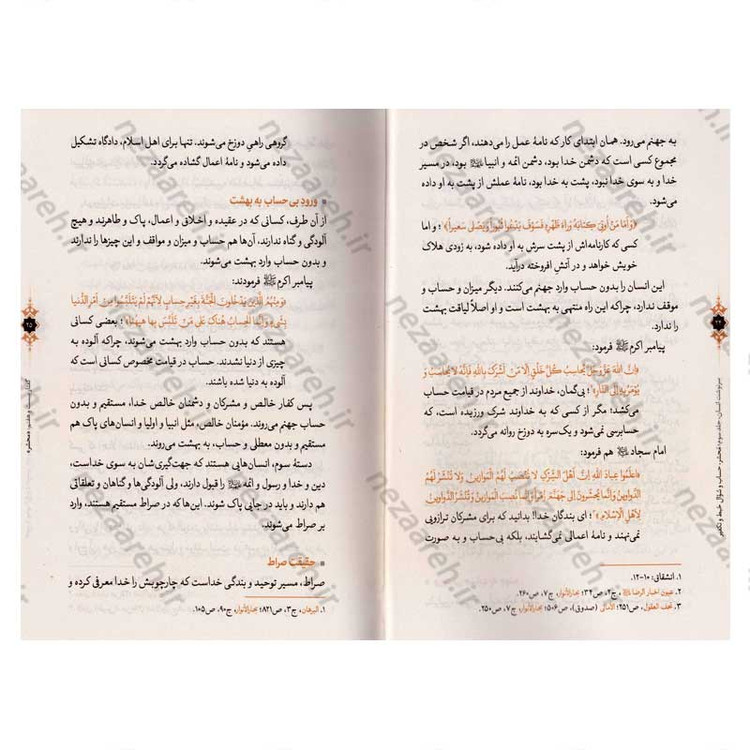 به جهنم می‌رود. همان ابتدای کار که نامهٔ عمل را می‌دهند، اگر شخص در
مجموع کسی است که دشمن خدا بود، دشمن ائمه و انبیا بود، در مسیر
خدا و به سوی خدا نبود، پشت به خدا بود، نامهٔ عملش از پشت به او داده
می‌شود.
﴿وَأَمَّا مَنْ أُوتِيَ كِتَابَهُ وَرَاءَ ظَهْرِهِ فَسَوْفَ يَدْعُوا ثُبُوراً وَيَصْلَى سَعِيراً﴾؛ و اما
کسی که کارنامه‌اش از پشت سرش به او داده شود، به زودی هلاک
خویش خواهد و در آتش افروخته درآید.
این انسان را بدون حساب وارد جهنم می‌کنند. دیگر میزان و حساب و
موقف ندارد، چراکه این راه منتهی به بهشت است و او اصلاً لیاقت بهشت
را ندارد.
پیامبر اکرم ﷺ فرمود:
«إِنَّ اللهَ عَزَّ وَجَلَّ يُحَاسِبُ كُلَّ خَلْقٍ إِلَّا مَنْ أَشْرَكَ بِاللهِ فَإِنَّهُ لَا يُحَاسَبُ وَ
يُؤْمَرُ بِهِ إِلَى النَّارِ»؛ بی‌گمان، خداوند از جمیع مردم در قیامت حساب
می‌کشد؛ مگر از کسی که به خداوند شرک ورزیده است، که
حسابرسی نمی‌شود و یک‌سره به دوزخ روانه می‌گردد.
امام سجاد هم فرمود:
«اعْلَمُوا عِبَادَ اللهِ أَنَّ أَهْلَ الشِّرْكِ لَا تُنْصَبُ لَهُمُ الْمَوَازِينُ وَلَا تُنْشَرُ لَهُمُ
الدَّوَاوِينُ وَإِنَّمَا يُحْشَرُونَ إِلَى جَهَنَّمَ زُمَراً وَإِنَّمَا نَصْبُ الْمَوَازِينِ وَنَشْرُ الدَّوَاوِينِ
لِأَهْلِ الْإِسْلَامِ»؛ ای بندگان خدا! بدانید که برای مشرکان ترازویی
نمی‌نهند و نامهٔ اعمالی نمی‌گشایند، بلکه بی‌حساب و به صورت
۱. انشقاق: ۱۰-۱۲.
۲. عیون اخبار الرضا، ج۲، ص۳۴؛ بحارالأنوار، ج۷، ص۲۶۰.
۳. تحف العقول، ص۲۵۱؛ الأمالی (صدوق)، ص۵۰۶؛ بحارالأنوار، ج۷، ص۲۵۰.
گروهی راهیِ دوزخ می‌شوند. تنها برای اهل اسلام، دادگاه تشکیل
داده می‌شود و نامهٔ اعمال گشاده می‌گردد.
ورودِ بی‌حساب به بهشت
از آن طرف، کسانی که در عقیده و اخلاق و اعمال، پاک و طاهرند و هیچ
آلودگی و گناه ندارند، آن‌ها هم حساب و میزان و مواقف و این چیزها را ندارند
و بدون حساب وارد بهشت می‌شوند.
پیامبر اکرم ﷺ فرمودند:
«وَمِنْهُمُ الَّذِينَ يَدْخُلُونَ الْجَنَّةَ بِغَيْرِ حِسَابٍ لِأَنَّهُمْ لَمْ يَتَلَبَّسُوا مِنْ أَمْرِ الدُّنْيَا
بِشَيْءٍ وَإِنَّمَا الْحِسَابُ هُنَاكَ عَلَى مَنْ تَلَبَّسَ بِهَا هَاهُنَا»؛ بعضی کسانی
هستند که بدون حساب وارد بهشت می‌شوند، چراکه آلوده به
چیزی از دنیا نشدند. حساب در قیامت مخصوص کسانی است که
آلوده به دنیا شده باشند.
پس کفار خالص و مشرکان و دشمنان خالص خدا، مستقیم و بدون
حساب جهنم می‌روند. مؤمنان خالص، مثل انبیا و اولیا و انسان‌های پاک هم
مستقیم و بدون معطلی و حساب، به بهشت می‌روند.
دستهٔ سوم، انسان‌هایی هستند که جهت‌گیری‌شان به سوی خداست،
دین و خدا و رسول و ائمه را قبول دارند، ولی آلودگی‌ها و گناهان و تعلقاتی
هم دارند و باید در جایی پاک شوند. این‌ها که در صراط مستقیم هستند، وارد
بر صراط می‌شوند.
حقیقت صراط
صراط، مسیر توحید و بندگی خداست که چارچوبش را خدا معرفی کرده و
۱. البرهان، ج۳، ص۸۲۱؛ بحارالأنوار، ج۹۰، ص۱۰۵.
۲۵
nezaareh.ir